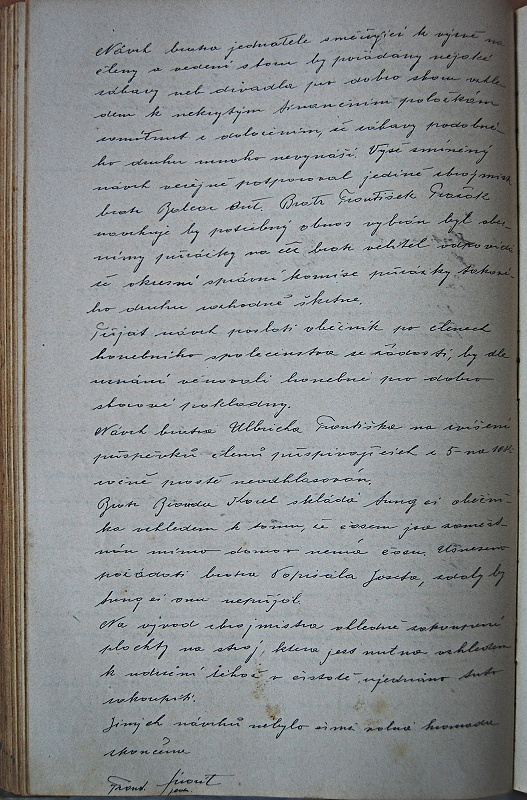 Návrh bratra jednatele směřující k výzvě na
členy a vedení sboru by pořádány nějaké
zábavy neb divadla pro dobro sboru vzhle
dem k nekrytým finančním položkám
zamítnut s doložením, že zábavy podobné-
ho druhu mnoho nevynáší. Výše zmíněný
návrh veřejně potporoval jedině zbrojmistr
bratr Balcar Ant. Bratr František
navrhuje by potřebný obnos vybrán byl obec
ními přirážky na což bratr velitel odpovídá
že okresní správní komise přirážky takové-
ho druhu rozhodně škrtne.
Přijat návrh poslati oběžník po členech
honebního společenstva se žádostí, by dle
uznání věnovali honebné pro dobro
sborové pokladny.
Návrh bratra Ullricha Františka na zvíšení
příspěvků členů přispívajících z 5 na 10 K
ročně prostě neodhlasován.
Bratr Karel skládá funkci
vzhledem k tomu, že časem jsa zaměst-
nán mimo domov nemá času. Usneseno
požádati bratra Pospíšila Josefa, zdaly by
funkci onu nepřijal.
Na vývod zbrojmistra ohledně zakoupení
plachty na stroj, která jest nutna vzhledem
k udržení téhož v čistotě, ujednáno tuto
zakoupiti.
Jiných návrhů nebylo čímž valná hromada
skončena
Frant.